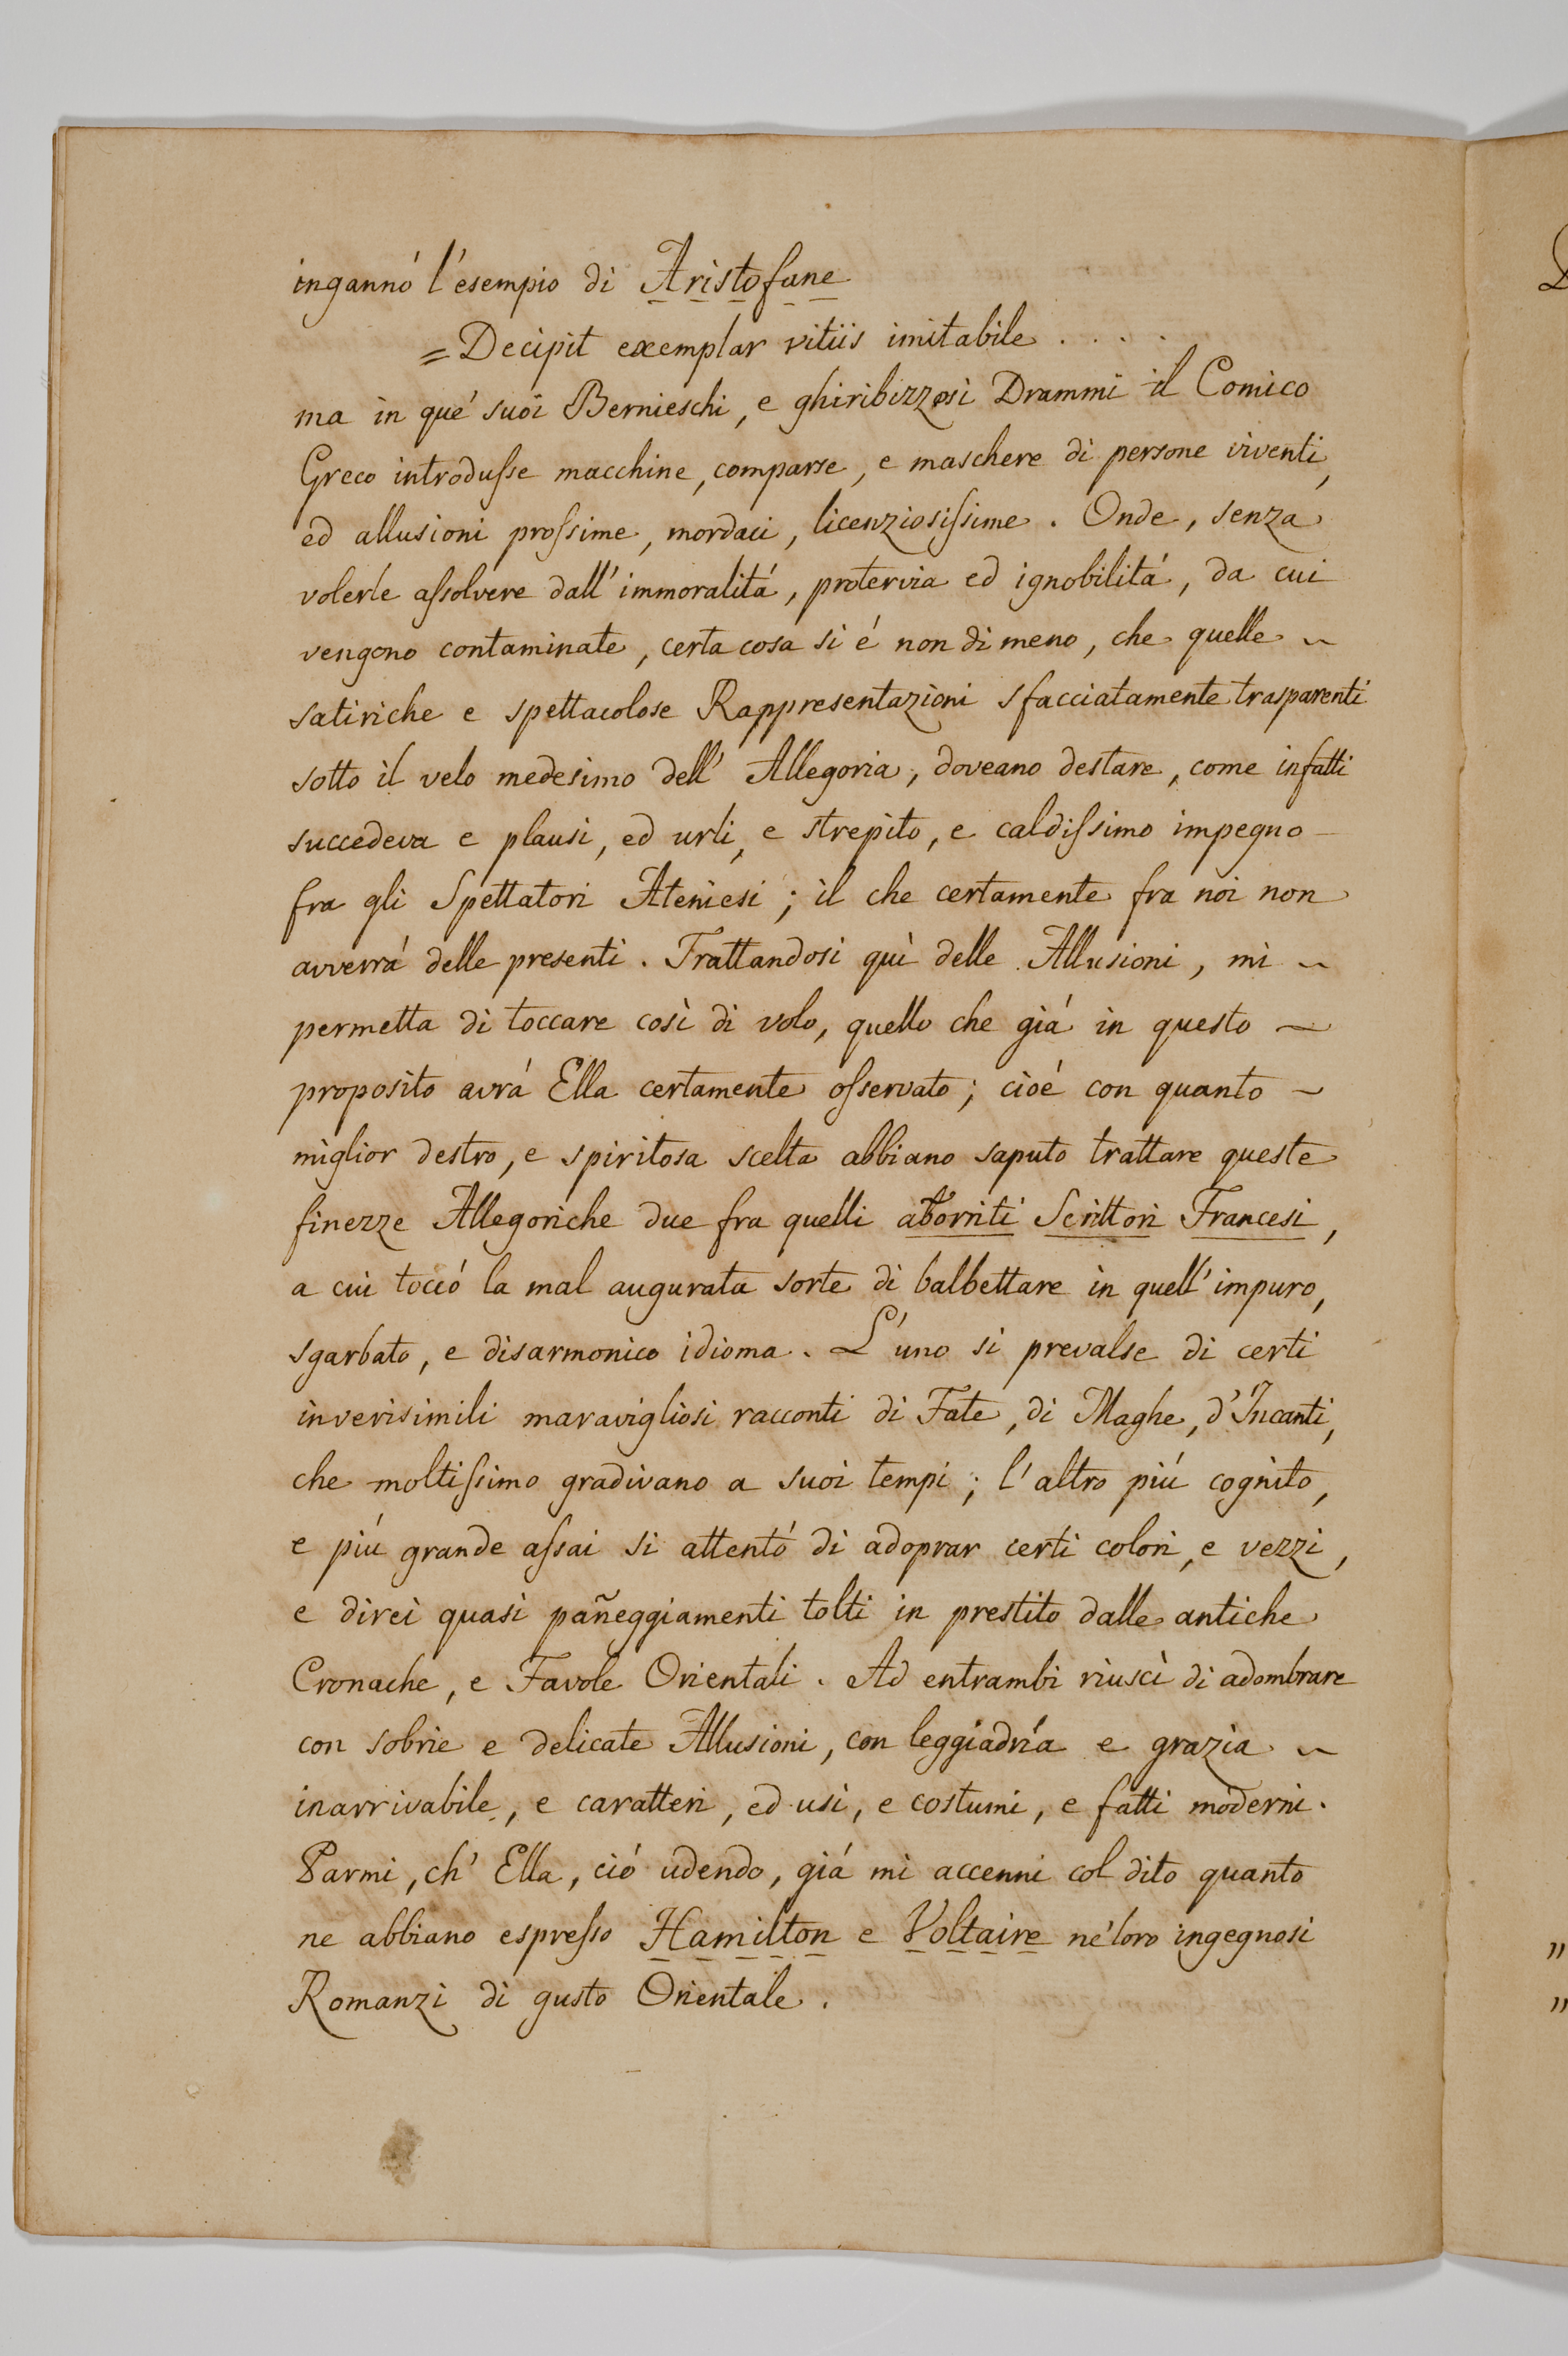 ingannó l'esempio di Aristofane
= Decipit exemplar vitiis imitabile . . . .
ma in qué suoi Bernieschi, e ghiribizzosi Drammi il Comico
Greco introduſse macchine, comparse, e maschere di persone viventi,
ed allusioni proſsime, mordaci, licenziosiſsime. Onde, senza
volerle aſsolvere dall'immoralitá, protervia ed ignobilitá, da cui
vengono contaminate, certa cosa si é non di meno, che quelle ~
satiriche e spettacolose Rappresentazioni sfacciatamente trasparenti
sotto il velo medesimo dell'Allegoria, doveano destare, come infatti
succedeva e plausi, ed urli, e strepito, e caldiſsimo impegno –
fra gli Spettatori Ateniesi; il che certamente fra noi non
avverrá delle presenti. Trattandosi quì delle Allusioni, mi ~
permetta di toccare così di volo, quello che giá in questo ~
proposito avrá Ella certamente oſservato; cioé con quanto ~
miglior destro, e spiritosa scelta abbiano saputo trattare queste
finezze Allegoriche due fra quelli aborriti Scrittori Francesi,
a cui toccó la mal augurata sorte di balbettare in quell'impuro,
sgarbato, e disarmonico idioma. L'uno si prevalse di certi
inverisimili maravigliosi racconti di Fate, di Maghe, d'Incanti,
che moltiſsimo gradivano a suoi tempi; l'altro piú cognito,
e piú grande aſsai si attentó di adoprar certi colori, e vezzi,
e direi quasi pañeggiamenti tolti in prestito dalle antiche
Cronache, e Favole Orientali. Ad entrambi riuscì di adombrare
con sobrie e delicate Allusioni, con leggiadría e grazia ~
inarrivabile, e caratteri, ed usi, e costumi, e fatti moderni.
Parmi, ch'Ella, ció udendo, giá mi accenni col dito quanto
ne abbiano espreſso Hamilton e Voltaire né loro ingegnosi
Romanzi di gusto Orientale.